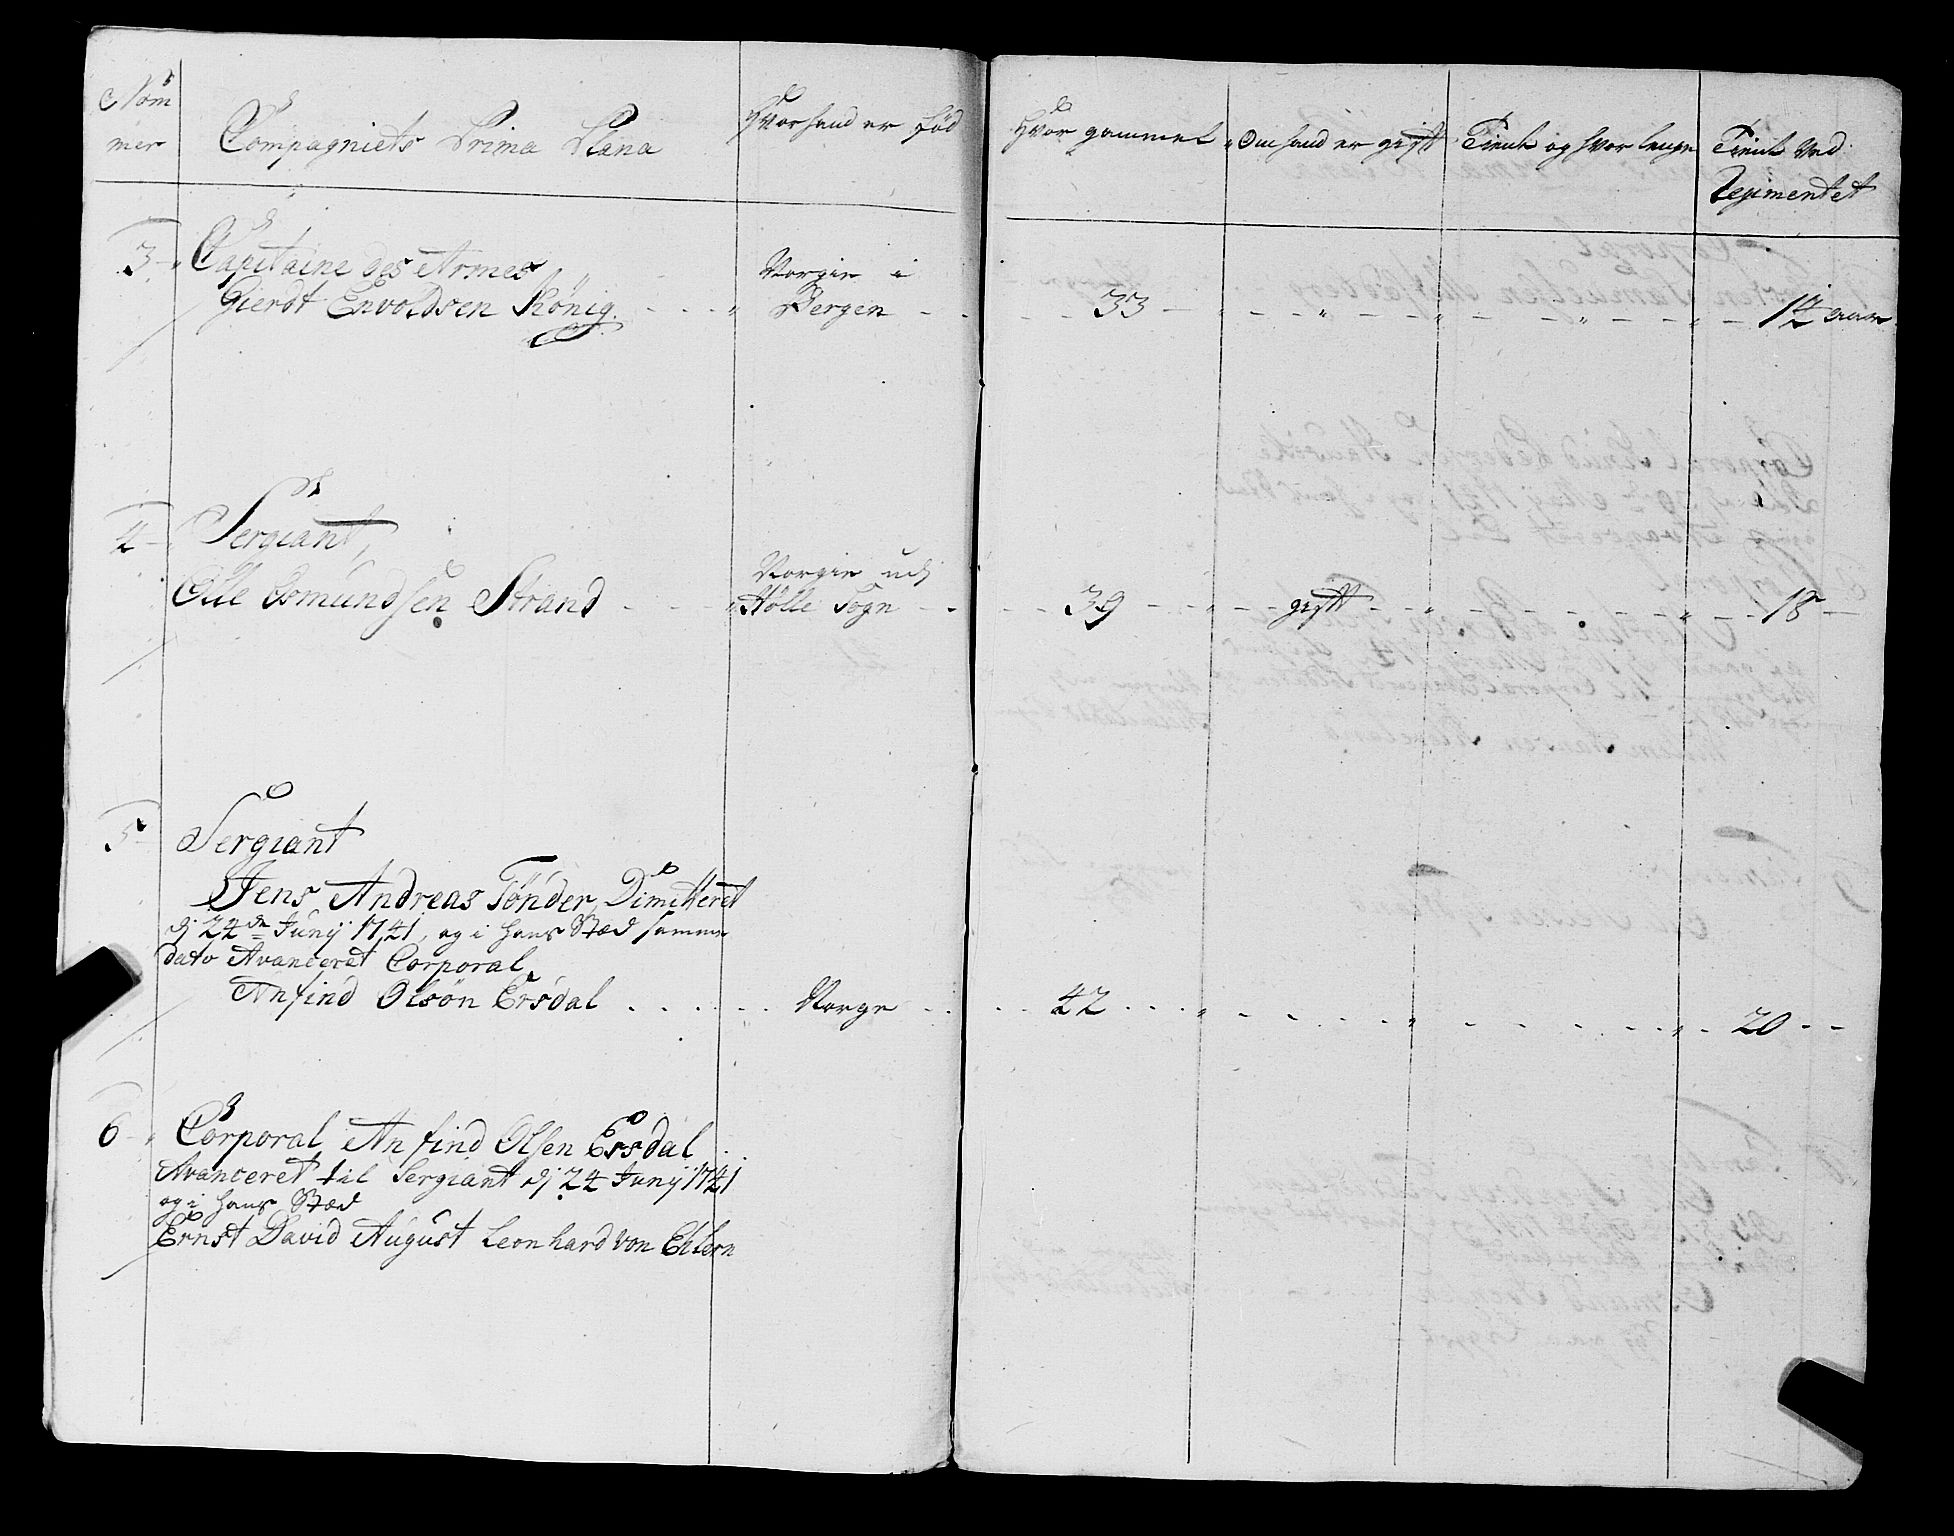 Nŭm
mer
Compagniets Prima Plana
Hvor hand er fød
Hvor gammel
Om hand er gift
Tient og hvor lenge
Tient ved
Regimentet
3
Capitaine des Armes
Gierdt Envoldsen König
Norgie i
Bergen
33
14 aar
4
Sergiant,
Olle Osmundsen Strand
Norgie udj
Hölle Sogn
39
gift
18
5
Sergiant
Jens Andreas Tönder, Dimitteret
dj 24de Junij 1741, og i hans Stæd samme
dato Avanceret Corporal
Anfind Olsön Ersdal
Norge
42
20
6
Corporal Anfind Olsen Ersdal
Avanceret til Sergiant dj 24 Junij 1741
og i hans Stæd
Ernst David August Leonhard von Ehlern